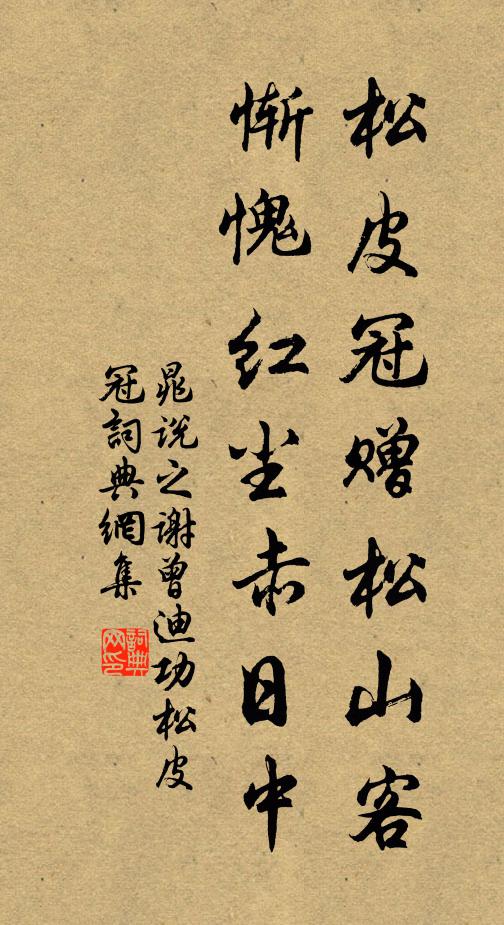 松皮冠赠松山客
惭愧红尘赤日中
晁说之谢曾迪功松皮
冠词典網集
詞典网印